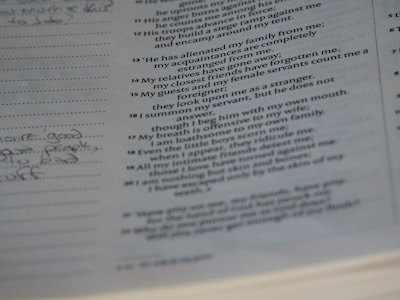 gone;
he uproots my
11 His anger burns against me;
he counts me among his enemies.
12 His troops advance in force;
they build a siege ramp against me
and encamp around my tent.
13 'He has alienated my family from me;
my acquaintances are completely
estranged from me.
14 My relatives have gone away;
my closest friends have forgotten me.
15 My guests and my female servants count me a
foreigner;
they look upon me as a stranger.
16 I summon my servant, but he does not
answer,
though I beg him with my own mouth.
17 My breath is offensive to my wife;
I am loathsome to my own family.
18 Even the little boys scorn me;
when I appear, they ridicule me.
19 All my intimate friends detest me;
those I love have turned against me.
20 I am nothing but skin and bones;
I have escaped only by the skin of my
teeth.
21 'Have pity on me, my friends, have pity,
for the hand of God has struck me.
22 Why do you pursue me as God does?
good
people,
bad